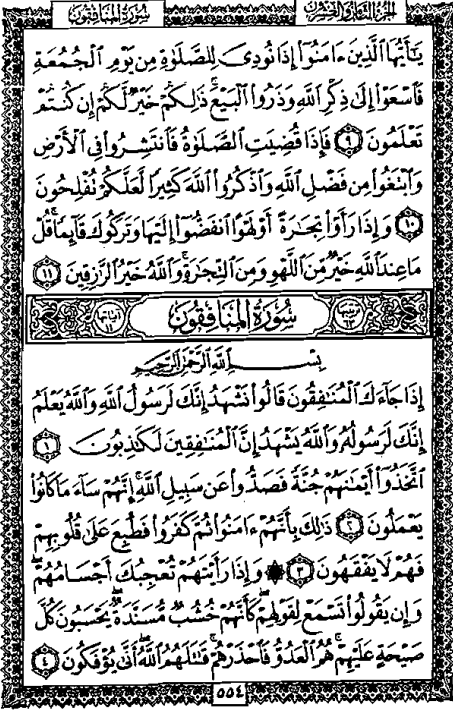 سُورَةُ المُنَافِقُونَ
الجُزْءُ الثَّامِنُ وَالعِشْرُونَ
يَٰٓأَيُّهَا ٱلَّذِينَ ءَامَنُوٓا۟ إِذَا نُودِىَ لِلصَّلَوٰةِ مِن يَوْمِ ٱلْجُمُعَةِ
فَٱسْعَوْا۟ إِلَىٰ ذِكْرِ ٱللَّهِ وَذَرُوا۟ ٱلْبَيْعَ ۚ ذَٰلِكُمْ خَيْرٌ لَّكُمْ إِن كُنتُمْ
تَعْلَمُونَ ٩ فَإِذَا قُضِيَتِ ٱلصَّلَوٰةُ فَٱنتَشِرُوا۟ فِى ٱلْأَرْضِ
وَٱبْتَغُوا۟ مِن فَضْلِ ٱللَّهِ وَٱذْكُرُوا۟ ٱللَّهَ كَثِيرًا لَّعَلَّكُمْ تُفْلِحُونَ
١٠ وَإِذَا رَأَوْا۟ تِجَٰرَةً أَوْ لَهْوًا ٱنفَضُّوٓا۟ إِلَيْهَا وَتَرَكُوكَ قَآئِمًا ۚ قُلْ
مَا عِندَ ٱللَّهِ خَيْرٌ مِّنَ ٱللَّهْوِ وَمِنَ ٱلتِّجَٰرَةِ ۚ وَٱللَّهُ خَيْرُ ٱلرَّٰزِقِينَ ١١
ترتيبها ٦٣ سُورَةُ المُنَافِقُونَ آياتها ١١
بِسْمِ ٱللَّهِ ٱلرَّحْمَٰنِ ٱلرَّحِيمِ
إِذَا جَآءَكَ ٱلْمُنَٰفِقُونَ قَالُوا۟ نَشْهَدُ إِنَّكَ لَرَسُولُ ٱللَّهِ وَٱللَّهُ يَعْلَمُ
إِنَّكَ لَرَسُولُهُۥ وَٱللَّهُ يَشْهَدُ إِنَّ ٱلْمُنَٰفِقِينَ لَكَٰذِبُونَ ١
ٱتَّخَذُوٓا۟ أَيْمَٰنَهُمْ جُنَّةً فَصَدُّوا۟ عَن سَبِيلِ ٱللَّهِ ۚ إِنَّهُمْ سَآءَ مَا كَانُوا۟
يَعْمَلُونَ ٢ ذَٰلِكَ بِأَنَّهُمْ ءَامَنُوا۟ ثُمَّ كَفَرُوا۟ فَطُبِعَ عَلَىٰ قُلُوبِهِمْ
فَهُمْ لَا يَفْقَهُونَ ٣ ۞ وَإِذَا رَأَيْتَهُمْ تُعْجِبُكَ أَجْسَامُهُمْ ۖ
وَإِن يَقُولُوا۟ تَسْمَعْ لِقَوْلِهِمْ ۖ كَأَنَّهُمْ خُشُبٌ مُّسَنَّدَةٌ ۖ يَحْسَبُونَ كُلَّ
صَيْحَةٍ عَلَيْهِمْ ۚ هُمُ ٱلْعَدُوُّ فَٱحْذَرْهُمْ ۚ قَٰتَلَهُمُ ٱللَّهُ ۖ أَنَّىٰ يُؤْفَكُونَ ٤
٥٥٤